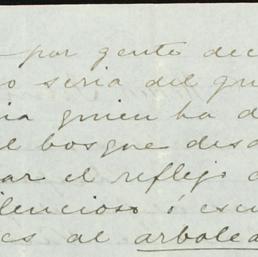 por gente dec
o seria del qu
ia quien ha d
el bosque desd
ar el reflejo d
ilencioso ó escu
es al arboled